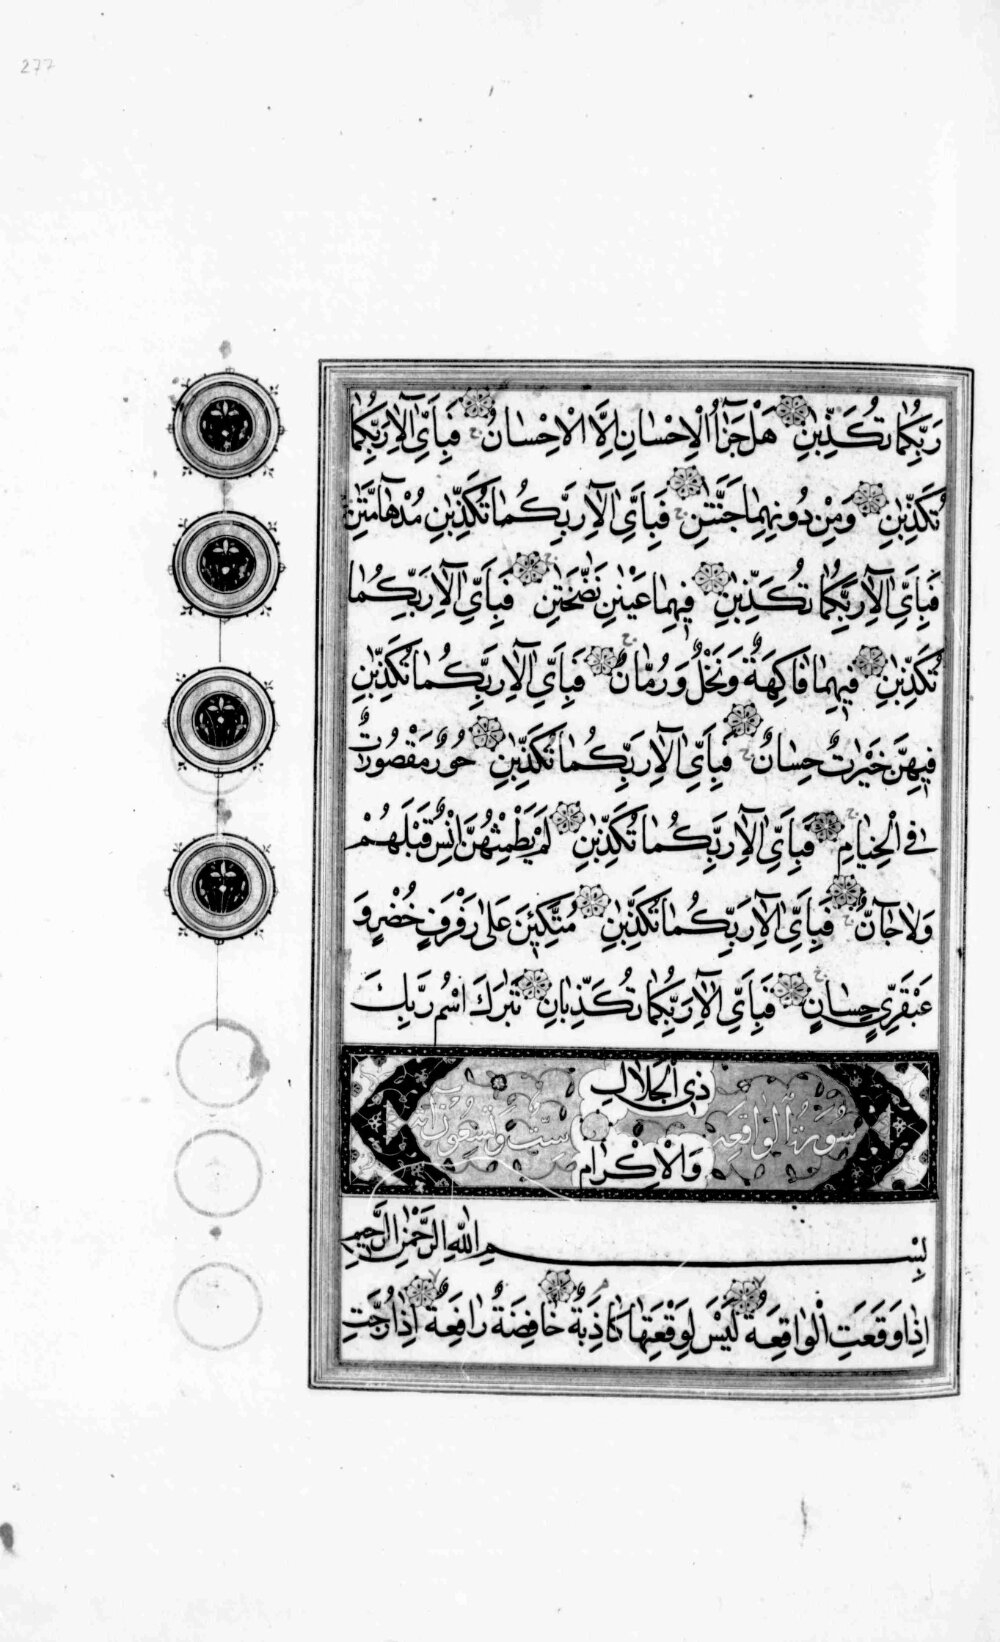 277
رَبِّكُمَا تُكَذِّبٰنِ هَلْ جَزَآءُ الْاِحْسَانِ اِلَّا الْاِحْسَانُ فَبِاَيِّ اٰلَآءِ رَبِّكُمَا
تُكَذِّبٰنِ وَمِنْ دُونِهِمَا جَنَّتٰنِ فَبِاَيِّ اٰلَآءِ رَبِّكُمَا تُكَذِّبٰنِ مُدْهَآمَّتٰنِ
فَبِاَيِّ اٰلَآءِ رَبِّكُمَا تُكَذِّبٰنِ فِيهِمَا عَيْنٰنِ نَضَّاخَتٰنِ فَبِاَيِّ اٰلَآءِ رَبِّكُمَا
تُكَذِّبٰنِ فِيهِمَا فَاكِهَةٌ وَنَخْلٌ وَرُمَّانٌ فَبِاَيِّ اٰلَآءِ رَبِّكُمَا تُكَذِّبٰنِ
فِيهِنَّ خَيْرٰتٌ حِسَانٌ فَبِاَيِّ اٰلَآءِ رَبِّكُمَا تُكَذِّبٰنِ حُورٌ مَقْصُورٰتٌ
فِي الْخِيَامِ فَبِاَيِّ اٰلَآءِ رَبِّكُمَا تُكَذِّبٰنِ لَمْ يَطْمِثْهُنَّ اِنْسٌ قَبْلَهُمْ
وَلَا جَآنٌّ فَبِاَيِّ اٰلَآءِ رَبِّكُمَا تُكَذِّبٰنِ مُتَّكِئِينَ عَلٰى رَفْرَفٍ خُضْرٍ وَ
عَبْقَرِيٍّ حِسَانٍ فَبِاَيِّ اٰلَآءِ رَبِّكُمَا تُكَذِّبَانِ تَبٰرَكَ اسْمُ رَبِّكَ
ذِي الْجَلَالِ
سُورَةُ الْوَاقِعَةِ سِتٌّ وَتِسْعُونَ اٰيَة
وَالْاِكْرَامِ
بِسْمِ اللّٰهِ الرَّحْمٰنِ الرَّحِيمِ
اِذَا وَقَعَتِ الْوَاقِعَةُ لَيْسَ لِوَقْعَتِهَا كَاذِبَةٌ خَافِضَةٌ رَافِعَةٌ اِذَا رُجَّتِ